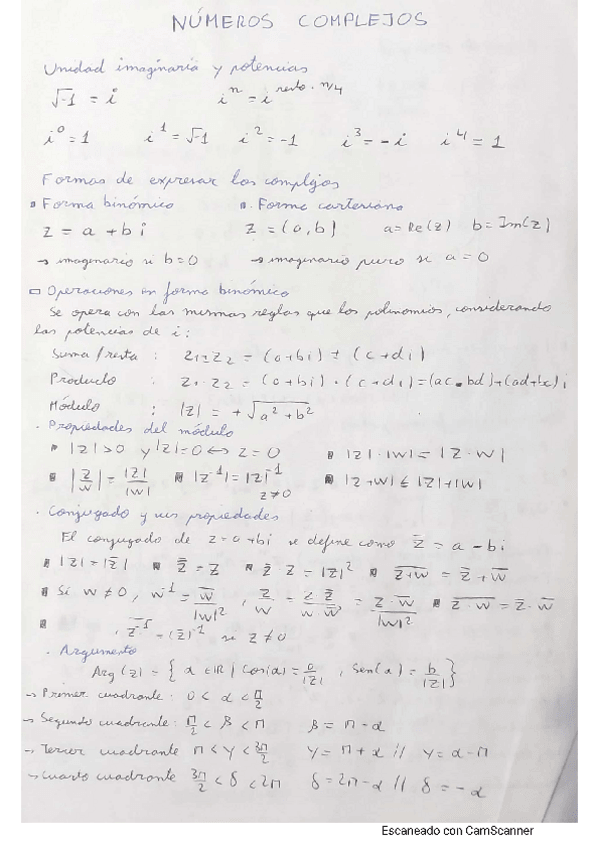 NÚMEROS COMPLEJOS
Unidad imaginaria y potencias
√-1 = i     i^n = i^(resto · n/4)
i^0 = 1   i^1 = √-1   i^2 = -1   i^3 = -i   i^4 = 1
Formas de expresar los complejos
▪ Forma binómica   ▪ Forma cartesiana
z = a + bi   z = (a, b)   a = Re(z)   b = Im(z)
→ imaginario si b=0   → imaginario puro si a = 0
□ Operaciones en forma binómica
Se opera con las mismas reglas que los polinomios, considerando
las potencias de i:
Suma/resta : z1 ± z2 = (a+bi) ± (c+di)
Producto : z1 · z2 = (a+bi) · (c+di) = (ac - bd) + (ad+bc)i
Módulo : |z| = +√(a^2 + b^2)
· Propiedades del módulo
▪ |z| > 0 y |z| = 0 ↔ z = 0   ▪ |z| · |w| = |z · w|
▪ |z/w| = |z|/|w|   ▪ |z^-1| = |z|^-1 z≠0   ▪ |z+w| ≤ |z|+|w|
· Conjugado y sus propiedades
El conjugado de z = a + bi se define como z̄ = a - bi
▪ |z| = |z̄|   ▪ z̿ = z   ▪ z̄ · z = |z|^2   ▪ \overline{z+w} = z̄ + w̄
▪ Si w ≠ 0, w^-1 = w̄/|w|^2, z/w = z · z̄/w · w̄ = z · w̄/|w|^2   ▪ \overline{z · w} = z̄ · w̄
▪ , \overline{z^-1} = |z̄|^-1 si z ≠ 0
· Argumento
Arg(z) = { α ∈ ℝ | Cos(α) = a/|z| , Sen(α) = b/|z| }
→ Primer cuadrante : 0 < α < π/2
→ Segundo cuadrante : π/2 < β < π   β = π - α
→ Tercer cuadrante π < γ < 3π/2   γ = π + α // γ = α - π
→ Cuarto cuadrante 3π/2 < δ < 2π   δ = 2π - α // δ = -α
Escaneado con CamScanner